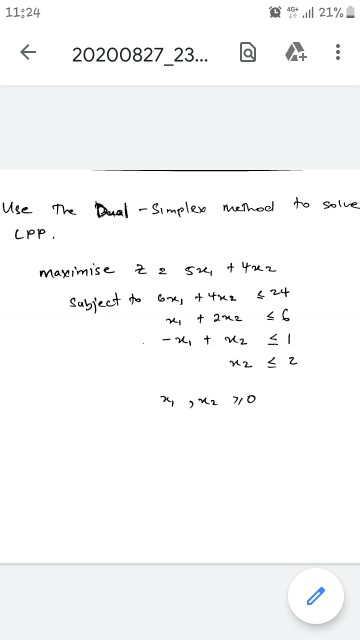 11:24 4G+ 21%
20200827_23...
Use The Dual - Simplex method to solve
LPP.
maximise z = 5x₁ + 4x₂
subject to 6x₁ + 4x₂ ≤ 24
x₁ + 2x₂ ≤ 6
-x₁ + x₂ ≤ 1
x₂ ≤ 2
x₁, x₂ ≥ 0